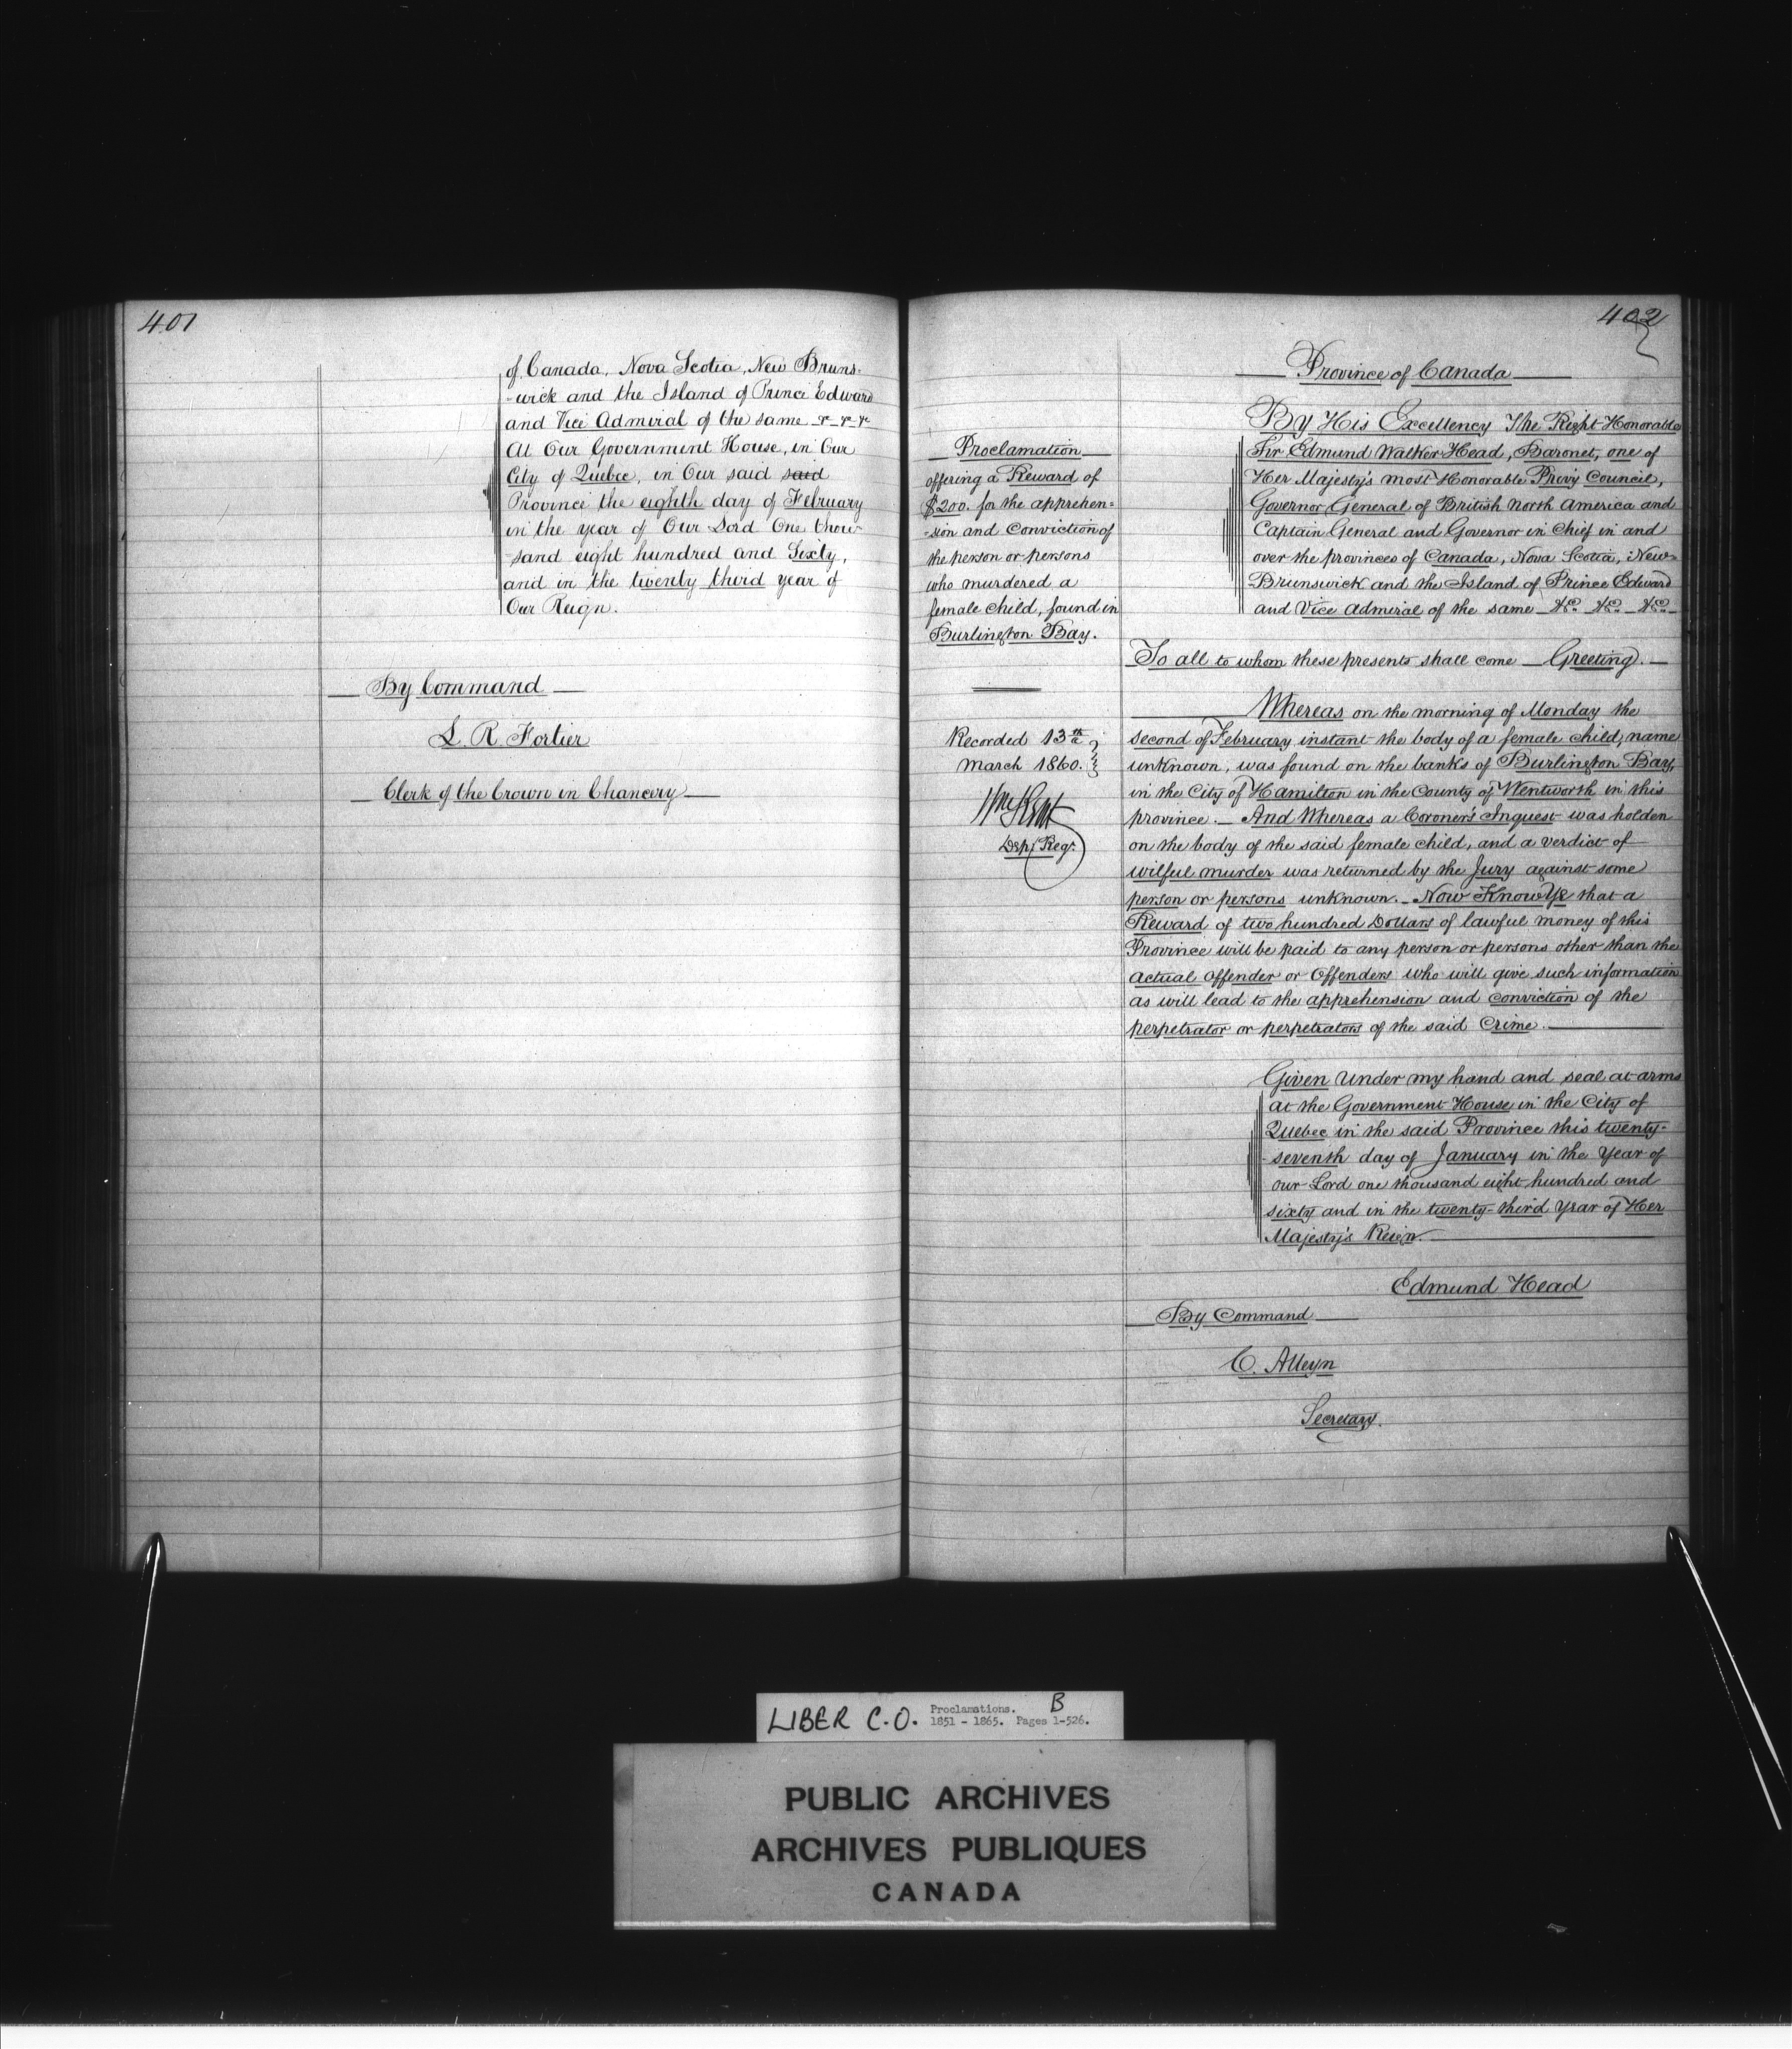 401
of Canada, Nova Scotia, New Bruns-
-wick and the Island of Prince Edward
and Vice Admiral of the same &c &c &c
At Our Government House, in Our
City of Quebec, in Our said said
Province the eighth day of February
in the year of Our Lord One thou-
-sand eight hundred and Sixty,
and in the twenty third year of
Our Reign.
By Command
L. R. Fortier
Clerk of the Crown in Chancery
402
Proclamation
offering a Reward of
$200. for the apprehen=
=sion and Conviction of
the person or persons
who murdered a
female child, found in
Burlington Bay.
Recorded 13th
March 1860.
Wm Kent
Depy Regr
Province of Canada
By His Excellency The Right Honorable
Sir Edmund Walker Head, Baronet, one of
Her Majesty's most Honorable Privy Council,
Governor General of British North America and
Captain General and Governor in Chief in and
over the provinces of Canada, Nova Scotia, New=
Brunswick and the Island of Prince Edward
and Vice Admiral of the same &c. &c. &c.
To all to whom these presents shall come Greeting.
Whereas on the morning of Monday the
second of February instant the body of a female child, name
unknown, was found on the banks of Burlington Bay,
in the City of Hamilton in the County of Wentworth in this
province. And Whereas a Coroner's Inquest was holden
on the body of the said female child, and a verdict of
wilful murder was returned by the Jury against some
person or persons unknown. Now Know Ye that a
Reward of two hundred Dollars of lawful money of this
Province will be paid to any person or persons other than the
actual offender or Offenders who will give such information
as will lead to the apprehension and conviction of the
perpetrator or perpetrators of the said Crime.
Given under my hand and seal at arms
at the Government House in the City of
Quebec in the said Province this twenty-
-seventh day of January in the Year of
our Lord one thousand eight hundred and
sixty and in the twenty-third Year of Her
Majesty's Reign.
Edmund Head
By Command
C. Alleyn
Secretary.
LIBER C.O. Proclamations. B
1851 - 1865. Pages 1-526.
PUBLIC ARCHIVES
ARCHIVES PUBLIQUES
CANADA